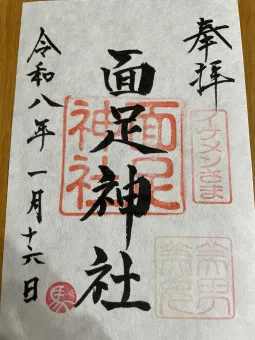 奉拝
面足神社
令和八年一月十六日
面足
神社
イケメンさま
馬